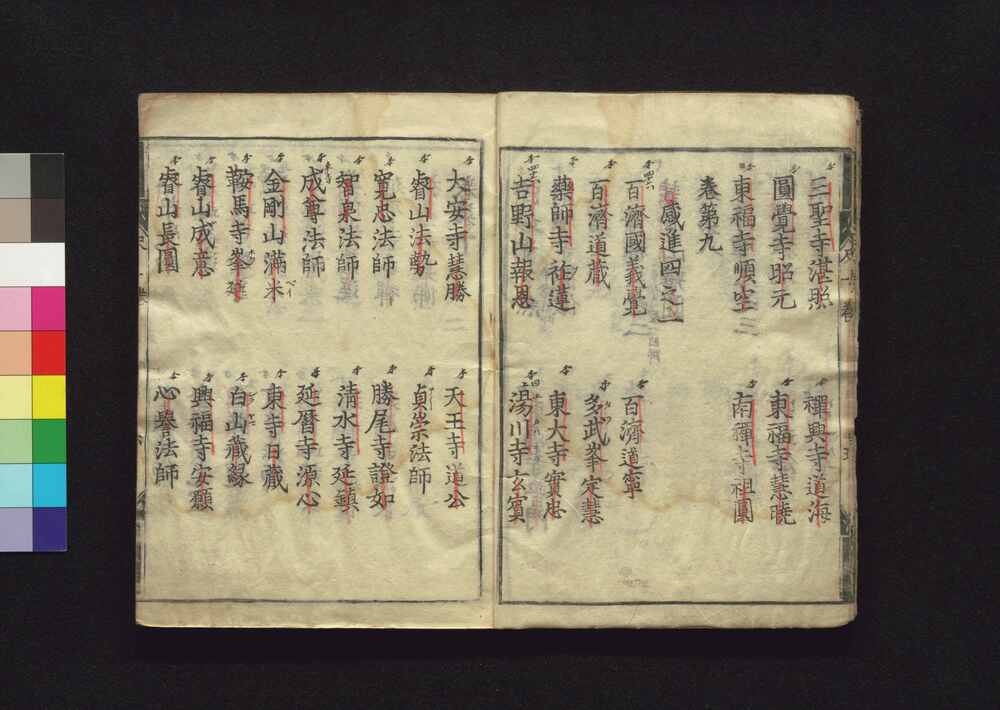 三聖寺湛照　禪興寺道海
圓覺寺昭元　東福寺慧曉
東福寺順空　南禪寺祖圓
卷第九
感進四之一
百濟國義覺　百濟道寧
百濟道藏　多武峯定慧
藥師寺祚蓮　東大寺實忠
吉野山報恩　湯川寺玄賓
大安寺慧勝　天王寺道公
睿山法勢　貞崇法師
寬忠法師　勝尾寺證如
智泉法師　清水寺延鎮
成尊法師　延曆寺源心
金剛山滿米　東寺日藏
鞍馬寺峯延　白山藏緣
睿山成意　興福寺安願
睿山長圓　心譽法師